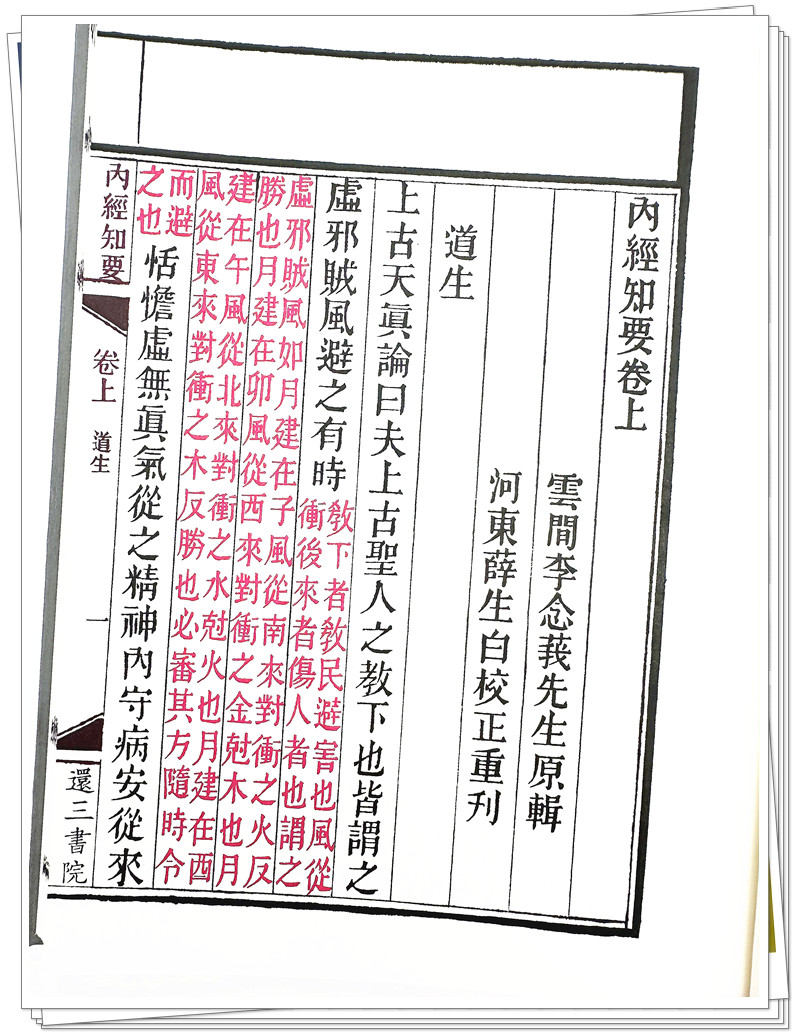 內經知要卷上
雲間李念莪先生原輯
河東薛生白校正重刊
道生
上古天眞論曰夫上古聖人之教下也皆謂之
虛邪賊風避之有時
教下者教民避害也風從
衝後來者傷人者也謂之
虛邪賊風如月建在子風從南來對衝之火反
勝也月建在卯風從西來對衝之金尅木也月
建在午風從北來對衝之水尅火也月建在酉
風從東來對衝之木反勝也必審其方隨時令
而避
之也
恬憺虛無眞氣從之精神內守病安從來
內經知要
卷上 道生
一
還三書院